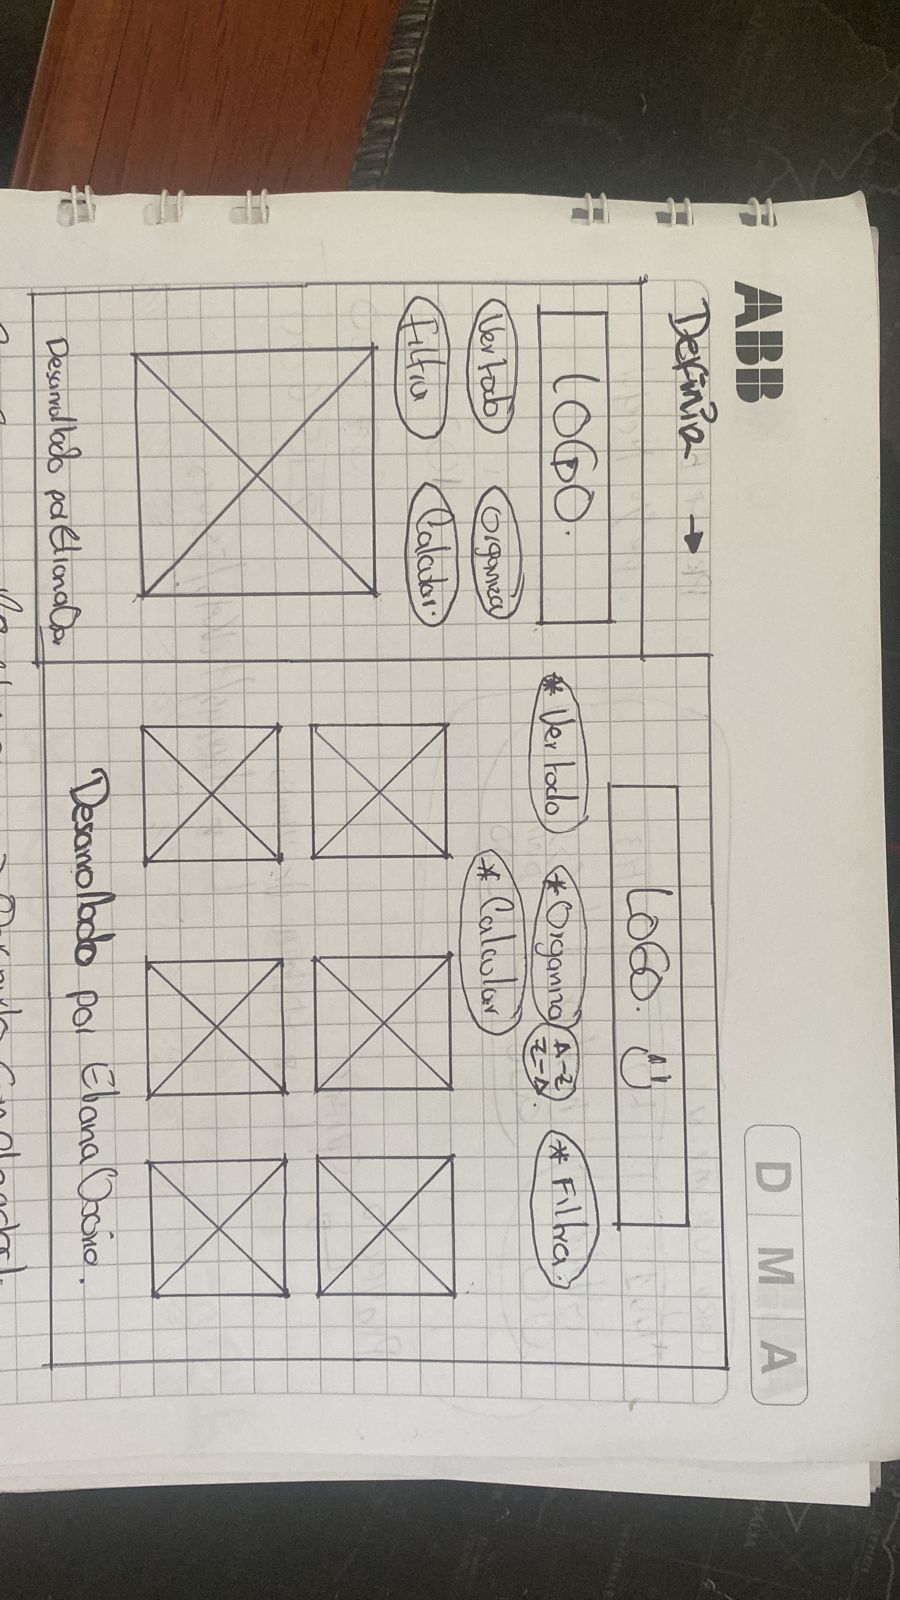 ABB
D M A
Definir →
LOGO.
Ver todo
Organiza
Filtra
Calcular.
Desarrollado por Eliana
LOGO.
* Ver todo
* Organiza
A-Z
Z-A
* Filtra.
* Calcular
Desarrollado por Eliana